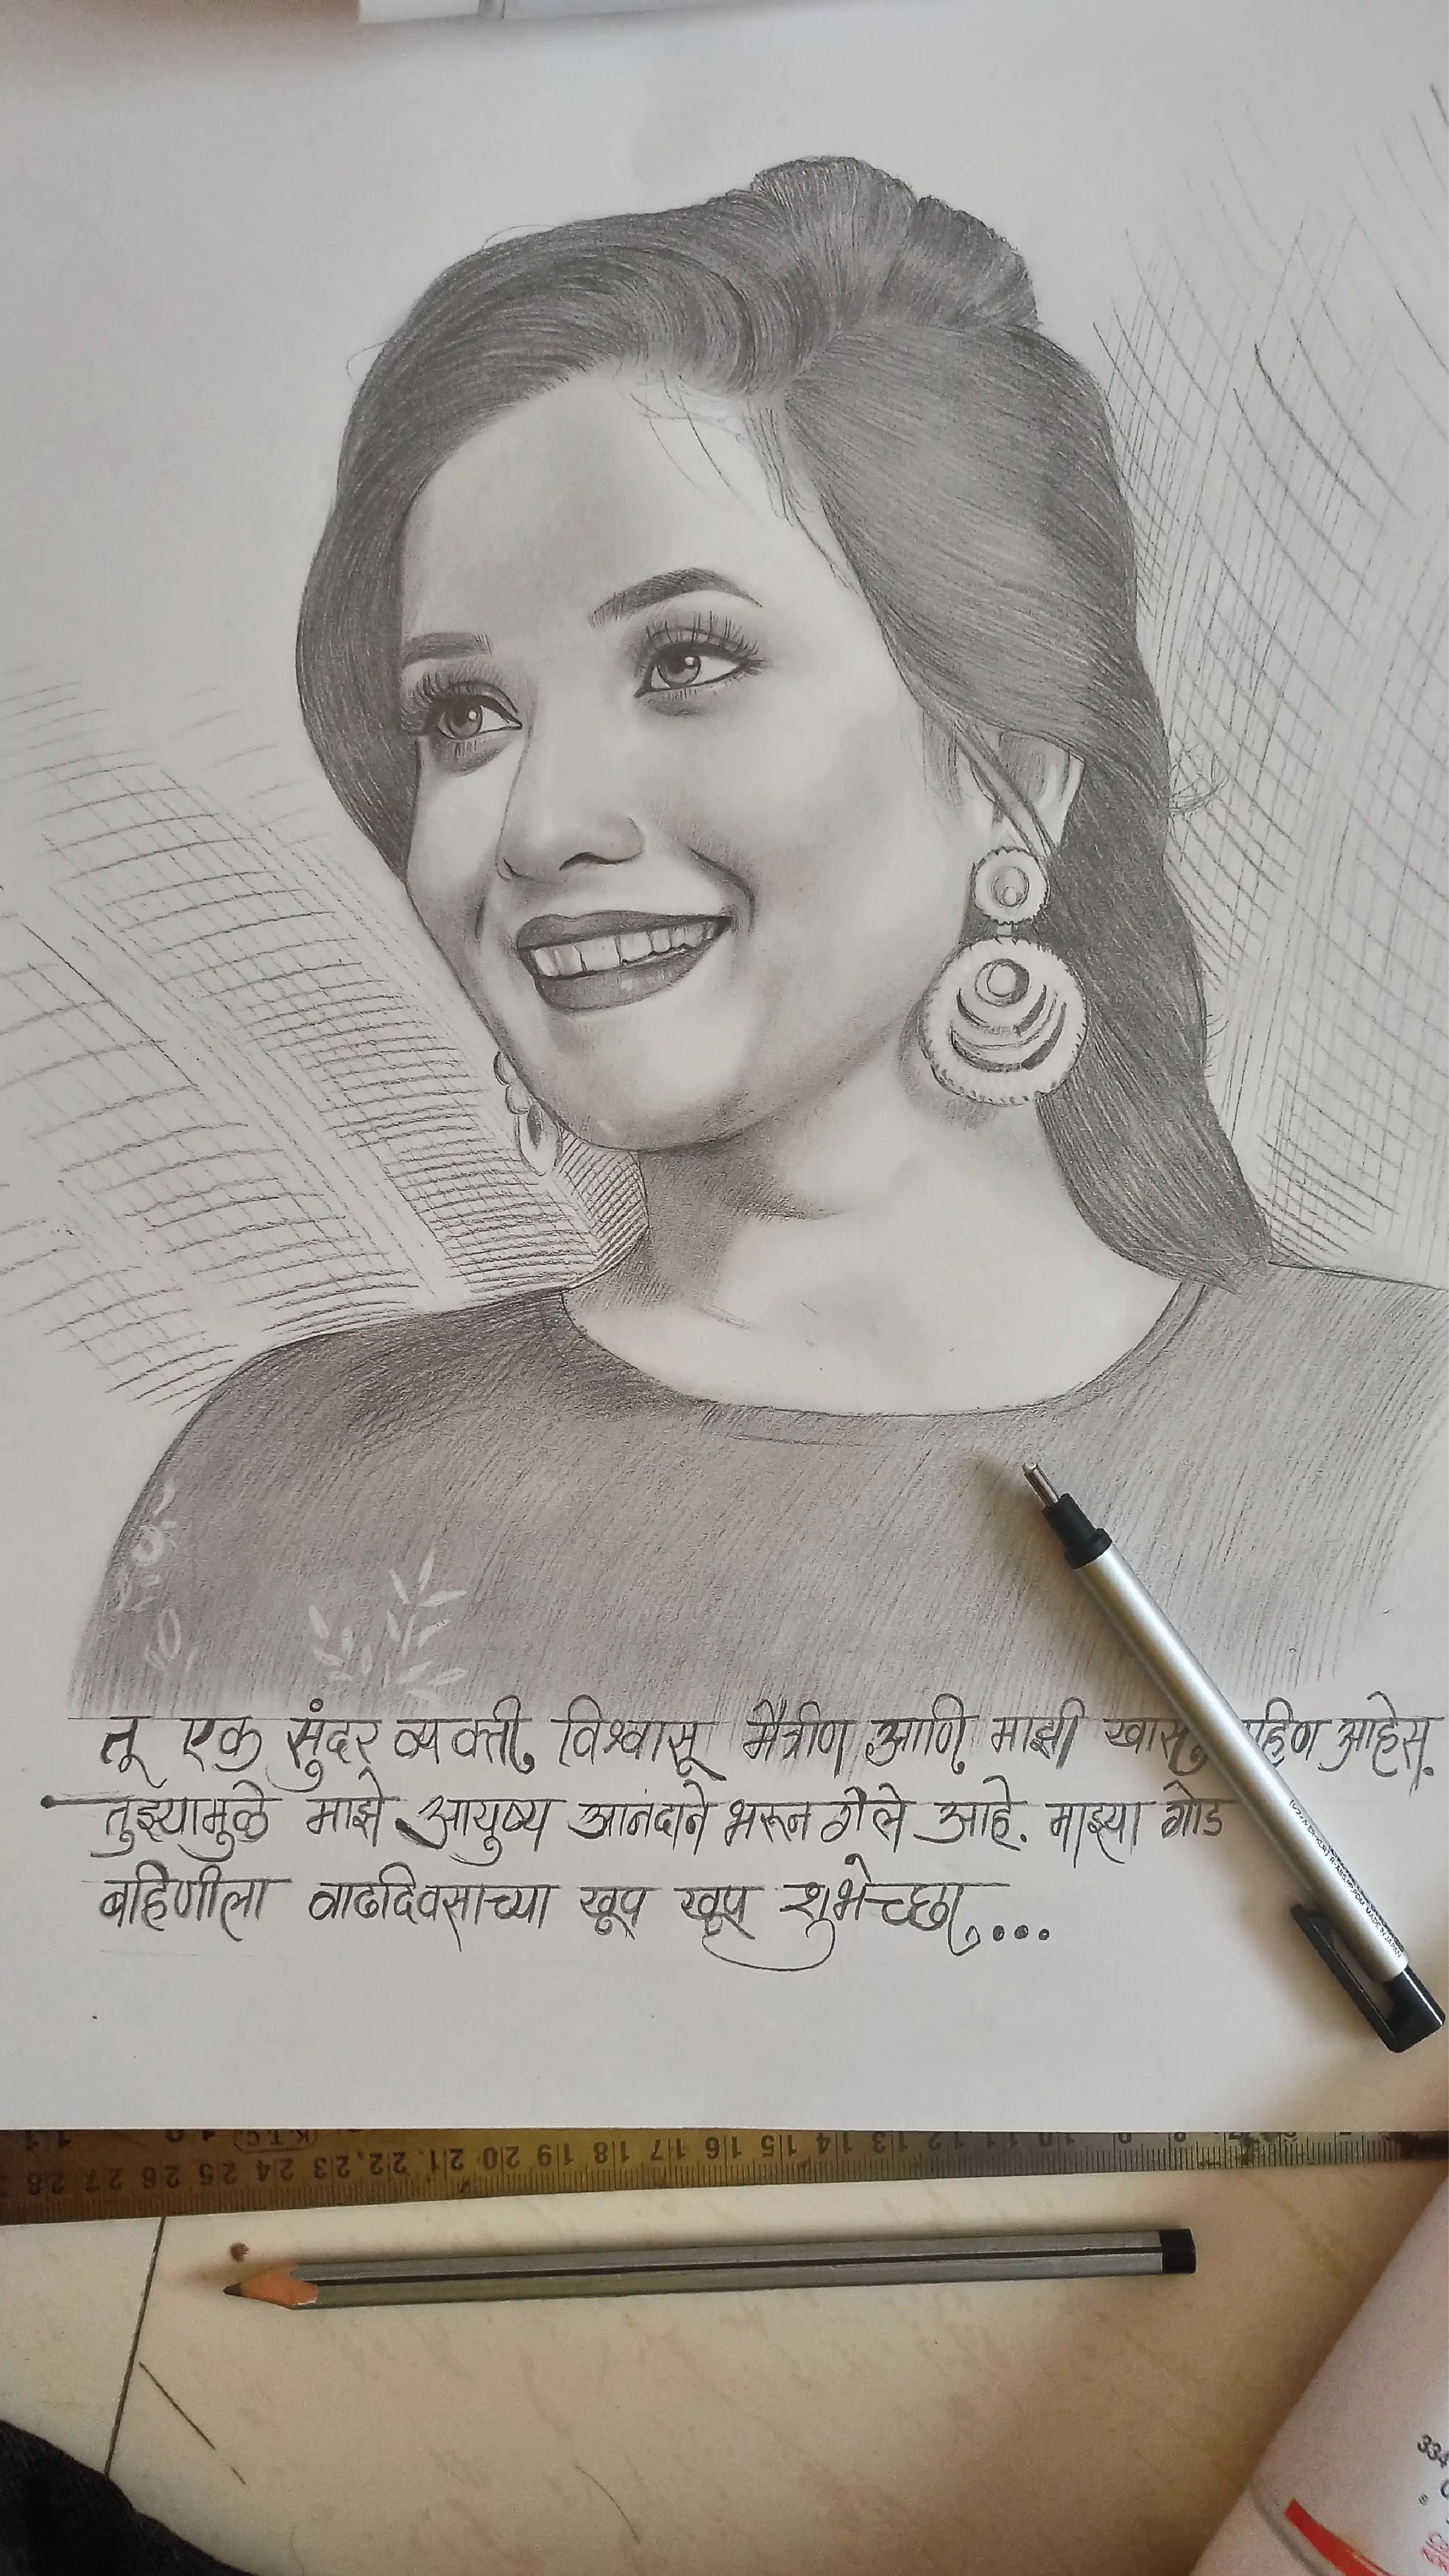 तू एक सुंदर व्यक्ती, विश्वासू मैत्रीण आणि माझी खास आहेस.
तुझ्यामुळे माझे आयुष्य आनंदाने भरून गेले आहे. माझ्या गोड
बहिणीला वाढदिवसाच्या खूप खूप शुभेच्छा....
MADE IN JAPAN
(K.T.C)
28 27 26 25 24 23 22 21 20 19 18 17 16 15 14 13 12 11 10 9 8
334